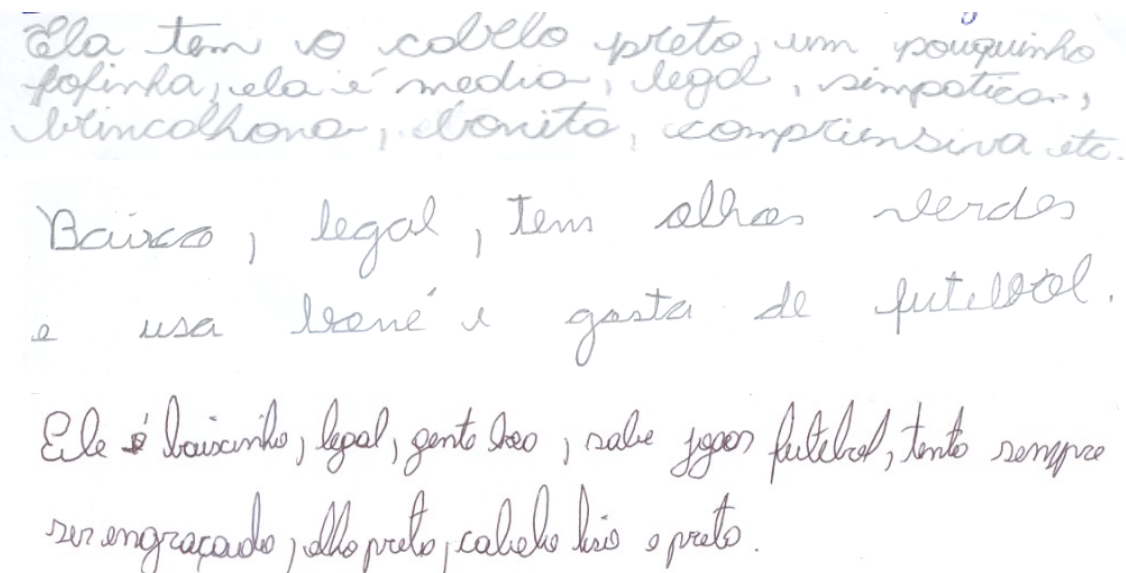 Ela tem o cabelo preto, um pouquinho
fofinha, ela é media, legal, simpatica,
brincalhona, bonita, compriensiva etc.
Baixo, legal, tem olhos verdes
e usa boné e gosta de futebol.
Ele é baixinho, legal, gente boa, sabe jogar futebol, tenta sempre
ser engraçado, olho preto, cabelo liso e preto.